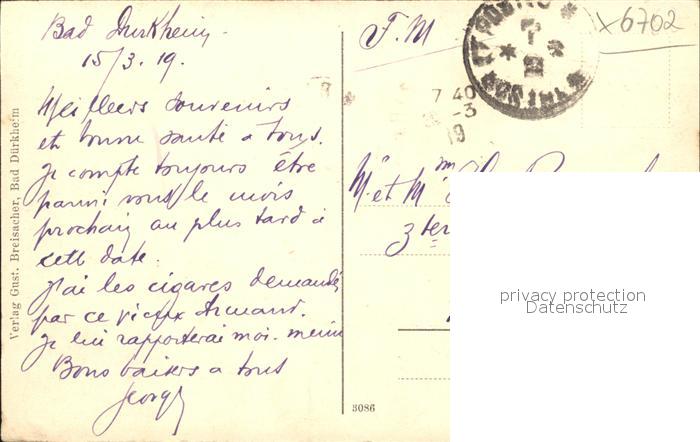 Bad Durkheim
15/3.19.
Meilleurs souvenirs
et bonne santé a tous.
Je compte toujours être
parmi vous le mois
prochain au plus tard à
cette date.
J'ai les cigares demandés
par ce vieux Armand.
Je lui rapporterai moi-meme
Bons baisers a tous
Georges
Verlag Gust. Breisacher, Bad Dürkheim
F. M
x 6702
7 40
-3
19
M. et Mme
3 ter
3086
privacy protection
Datenschutz